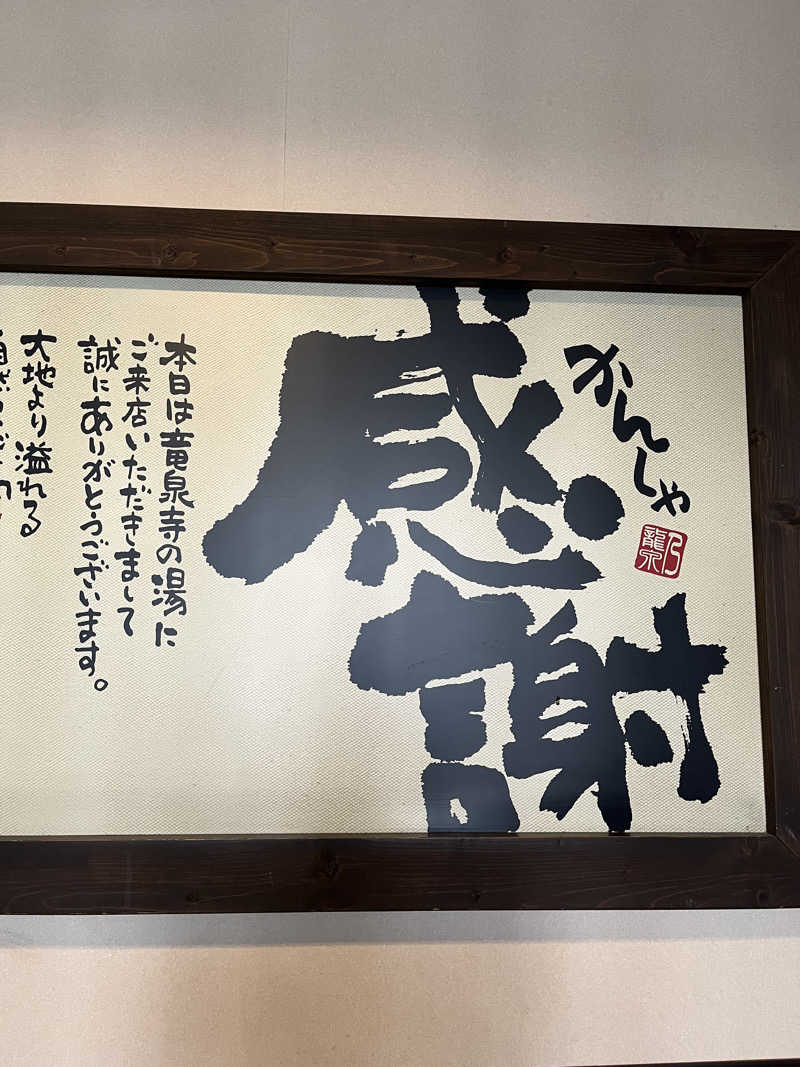 感謝
かんしゃ
龍泉乃
本日は竜泉寺の湯に
ご来店いただきまして
誠にありがとうございます。
大地より溢れる